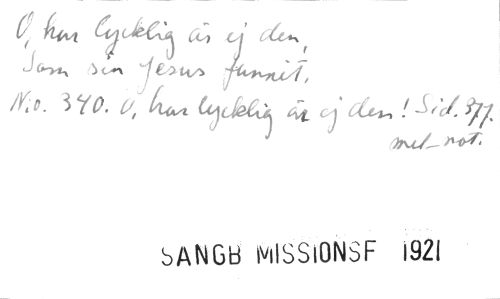 O, hur lycklig är ej den,
Som sin Jesus funnit.
N:o. 340. O, hur lycklig är ej den! Sid. 377.
mel-not.
SANGB MISSIONSF 1921